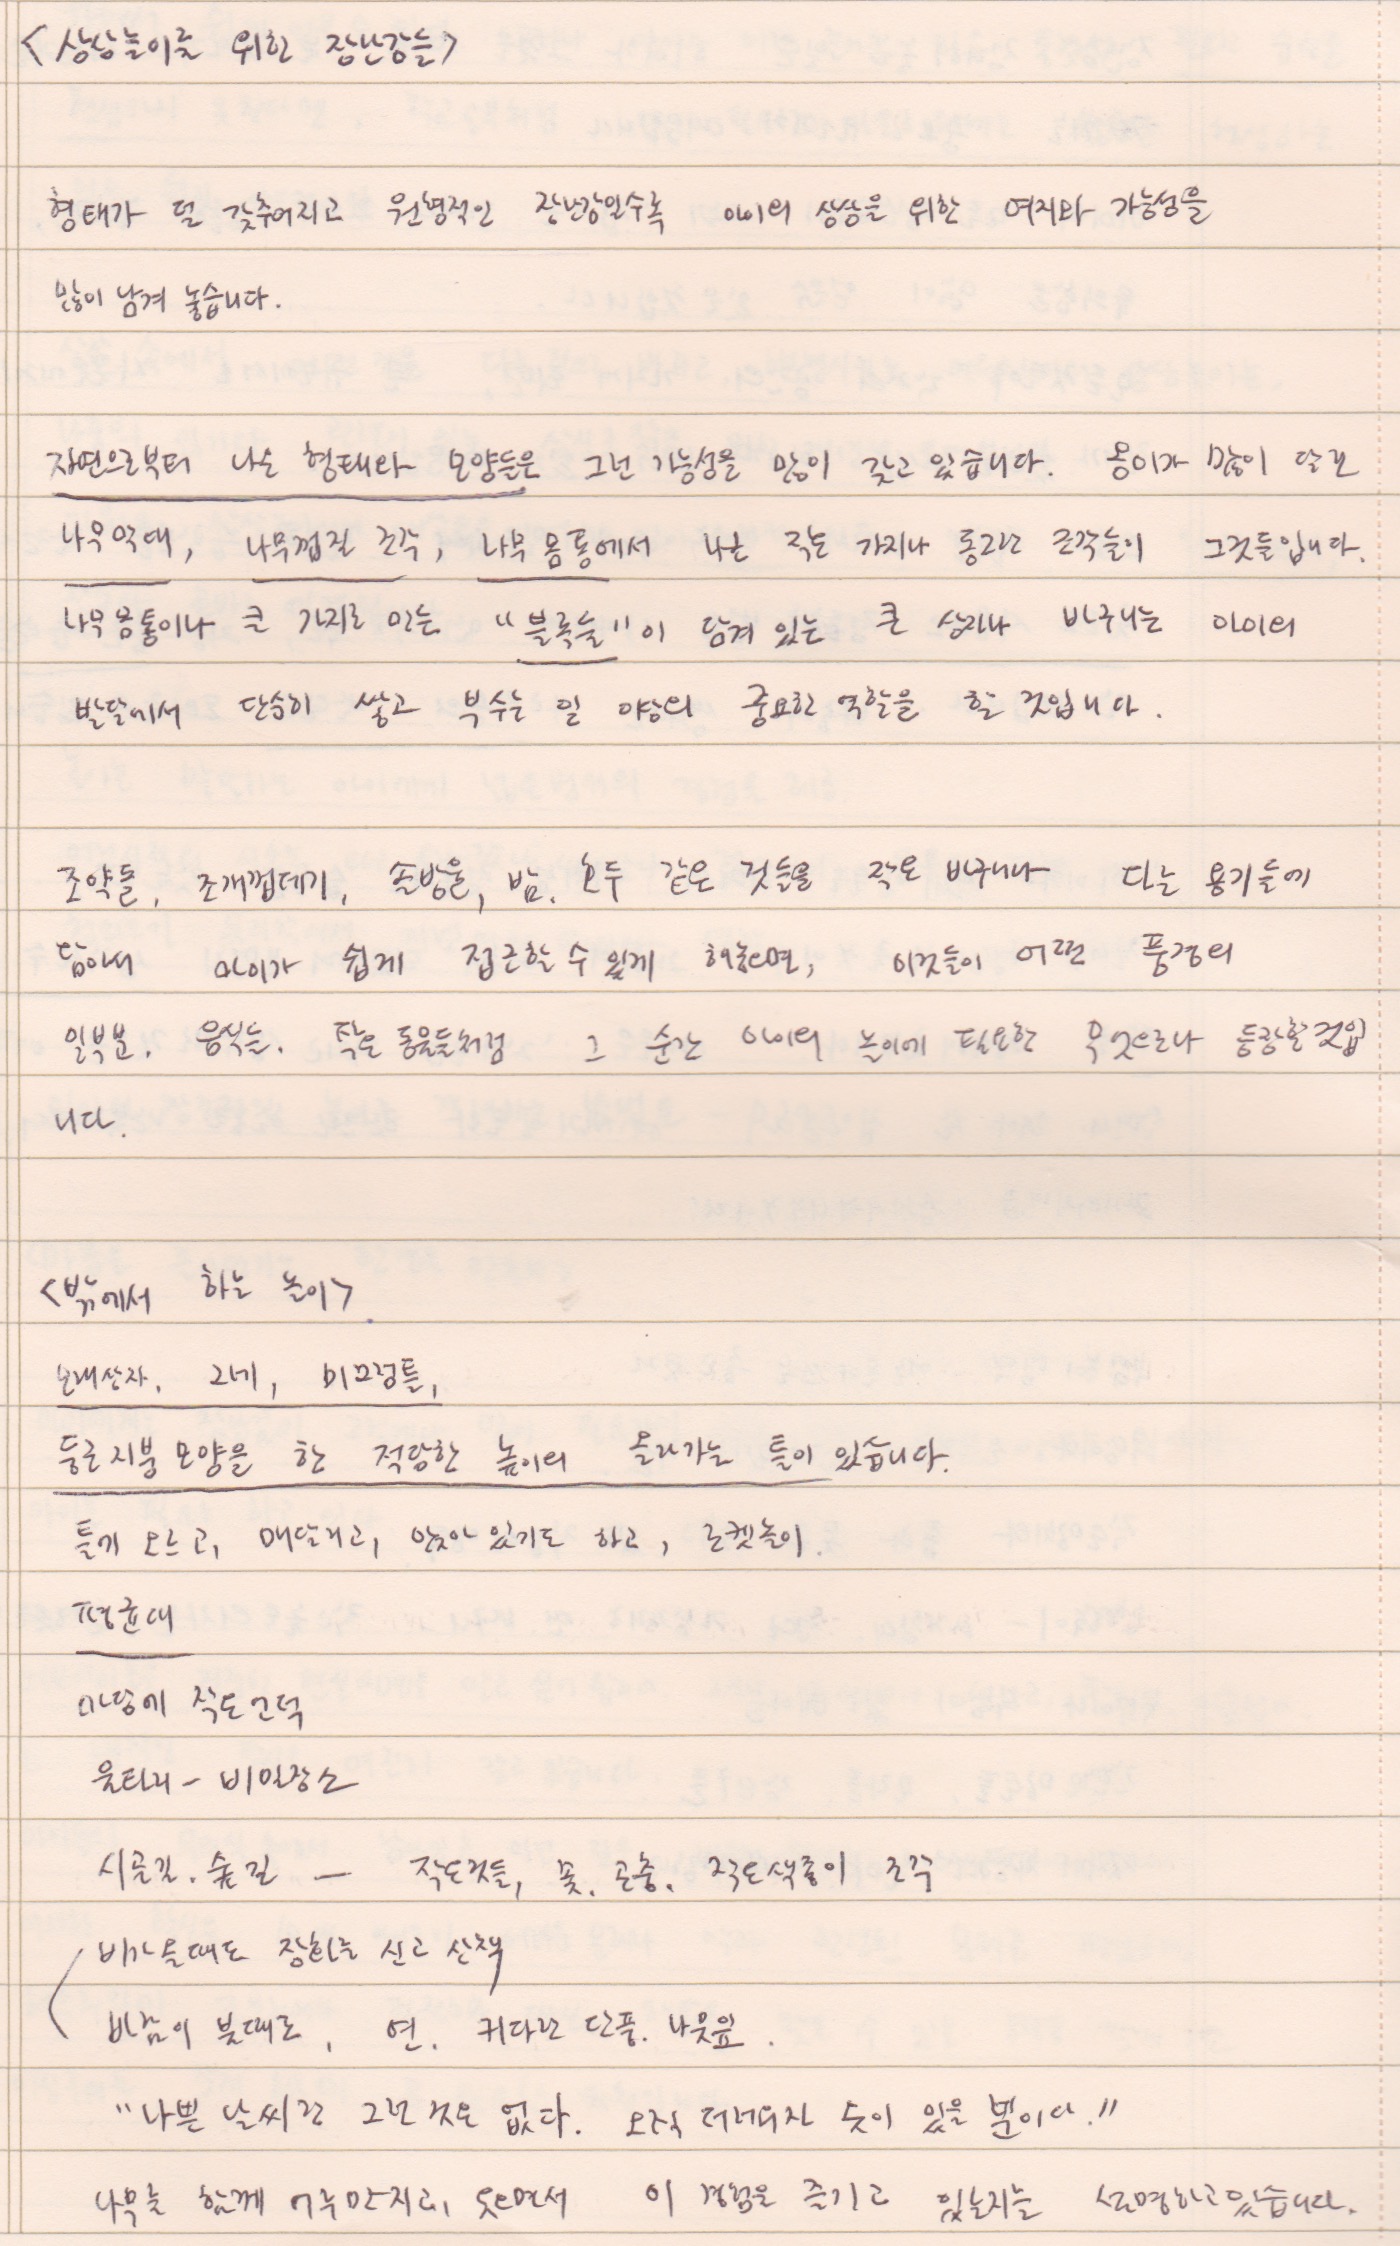 <상상놀이를 위한 장난감들>
형태가 덜 갖추어지고 원형적인 장난감일수록 아이의 상상을 위한 여지와 가능성을
많이 남겨 놓습니다.
자연으로부터 나온 형태와 모양들은 그런 가능성을 많이 갖고 있습니다. 옹이가 많이 달린
나무막대, 나무껍질 조각, 나무 몸통에서 나온 작은 가지나 동그란 조각들이 그것들입니다.
나무 몸통이나 큰 가지로 만든 "블록들"이 담겨 있는 큰 상자나 바구니는 아이의
발달에서 단순히 쌓고 부수는 일 이상의 중요한 역할을 할 것입니다.
조약돌, 조개껍데기, 솔방울, 밤, 호두 같은 것들을 작은 바구니나 다른 용기들에
담아서 아이가 쉽게 접근할 수 있게 해놓으면, 이것들이 어떤 풍경의
일부분, 음식들, 작은 동물들처럼 그 순간 아이의 놀이에 필요한 무엇으로나 등장할 것입
니다.
<밖에서 하는 놀이>
모래상자, 그네, 미끄럼틀,
둥근 지붕 모양을 한 적당한 높이의 올라가는 틀이 있습니다.
틀에 오르고, 매달리고, 앉아 있기도 하고, 로켓놀이.
평균대
마당에 작은 언덕
울타리 - 비밀장소
시골길, 숲길 - 작은것들, 꽃, 곤충, 작은색종이 조각
비가 올때도 장화를 신고 산책
바람이 불때로, 연, 커다란 단풍, 나뭇잎.
"나쁜 날씨란 그런 것은 없다. 오직 옷이 있을 뿐이다."
나무를 함께 어루만지고, 웃으면서 이 경험을 즐기고 있는지를 설명하고 있습니다.